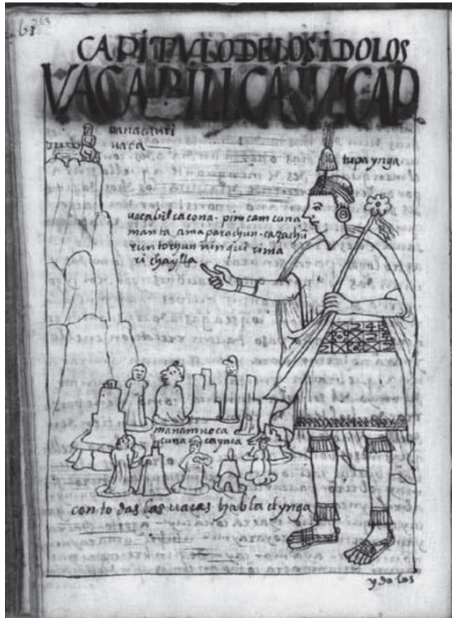 261 263
CAPITVLODELOSIDOLOS
VACABILLCAINCAP
uanacauri
uaca
tupa ynga
uacabilcacona· pim camcuna
manta ama parachun· cazachū
runtochun ninqui rima
ri chaylla
manam noca
cuna caynca
con todas las uacas habla el ynga
ydolos